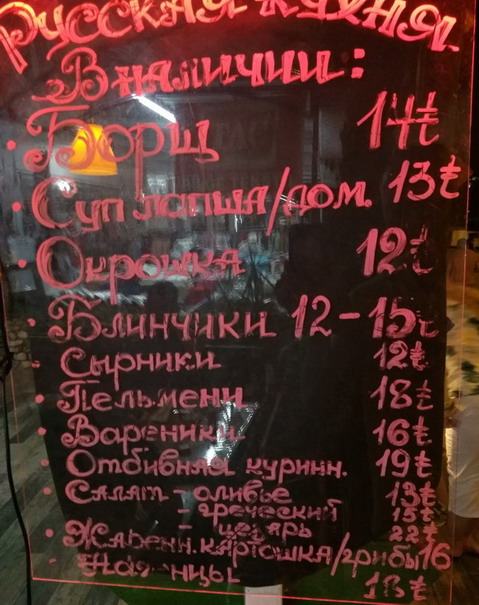 Русская кухня
В наличии:
• Борщ 14₺
• Суп лапша/дом. 13₺
• Окрошка 12₺
• Блинчики 12-15₺
- Сырники 12₺
• Пельмени 18₺
• Вареники 16₺
• Отбивная куринн. 19₺
• Салат - оливье 13₺
- греческий 15₺
- цезарь 22₺
• Жаренн. картошка/грибы 16
18₺